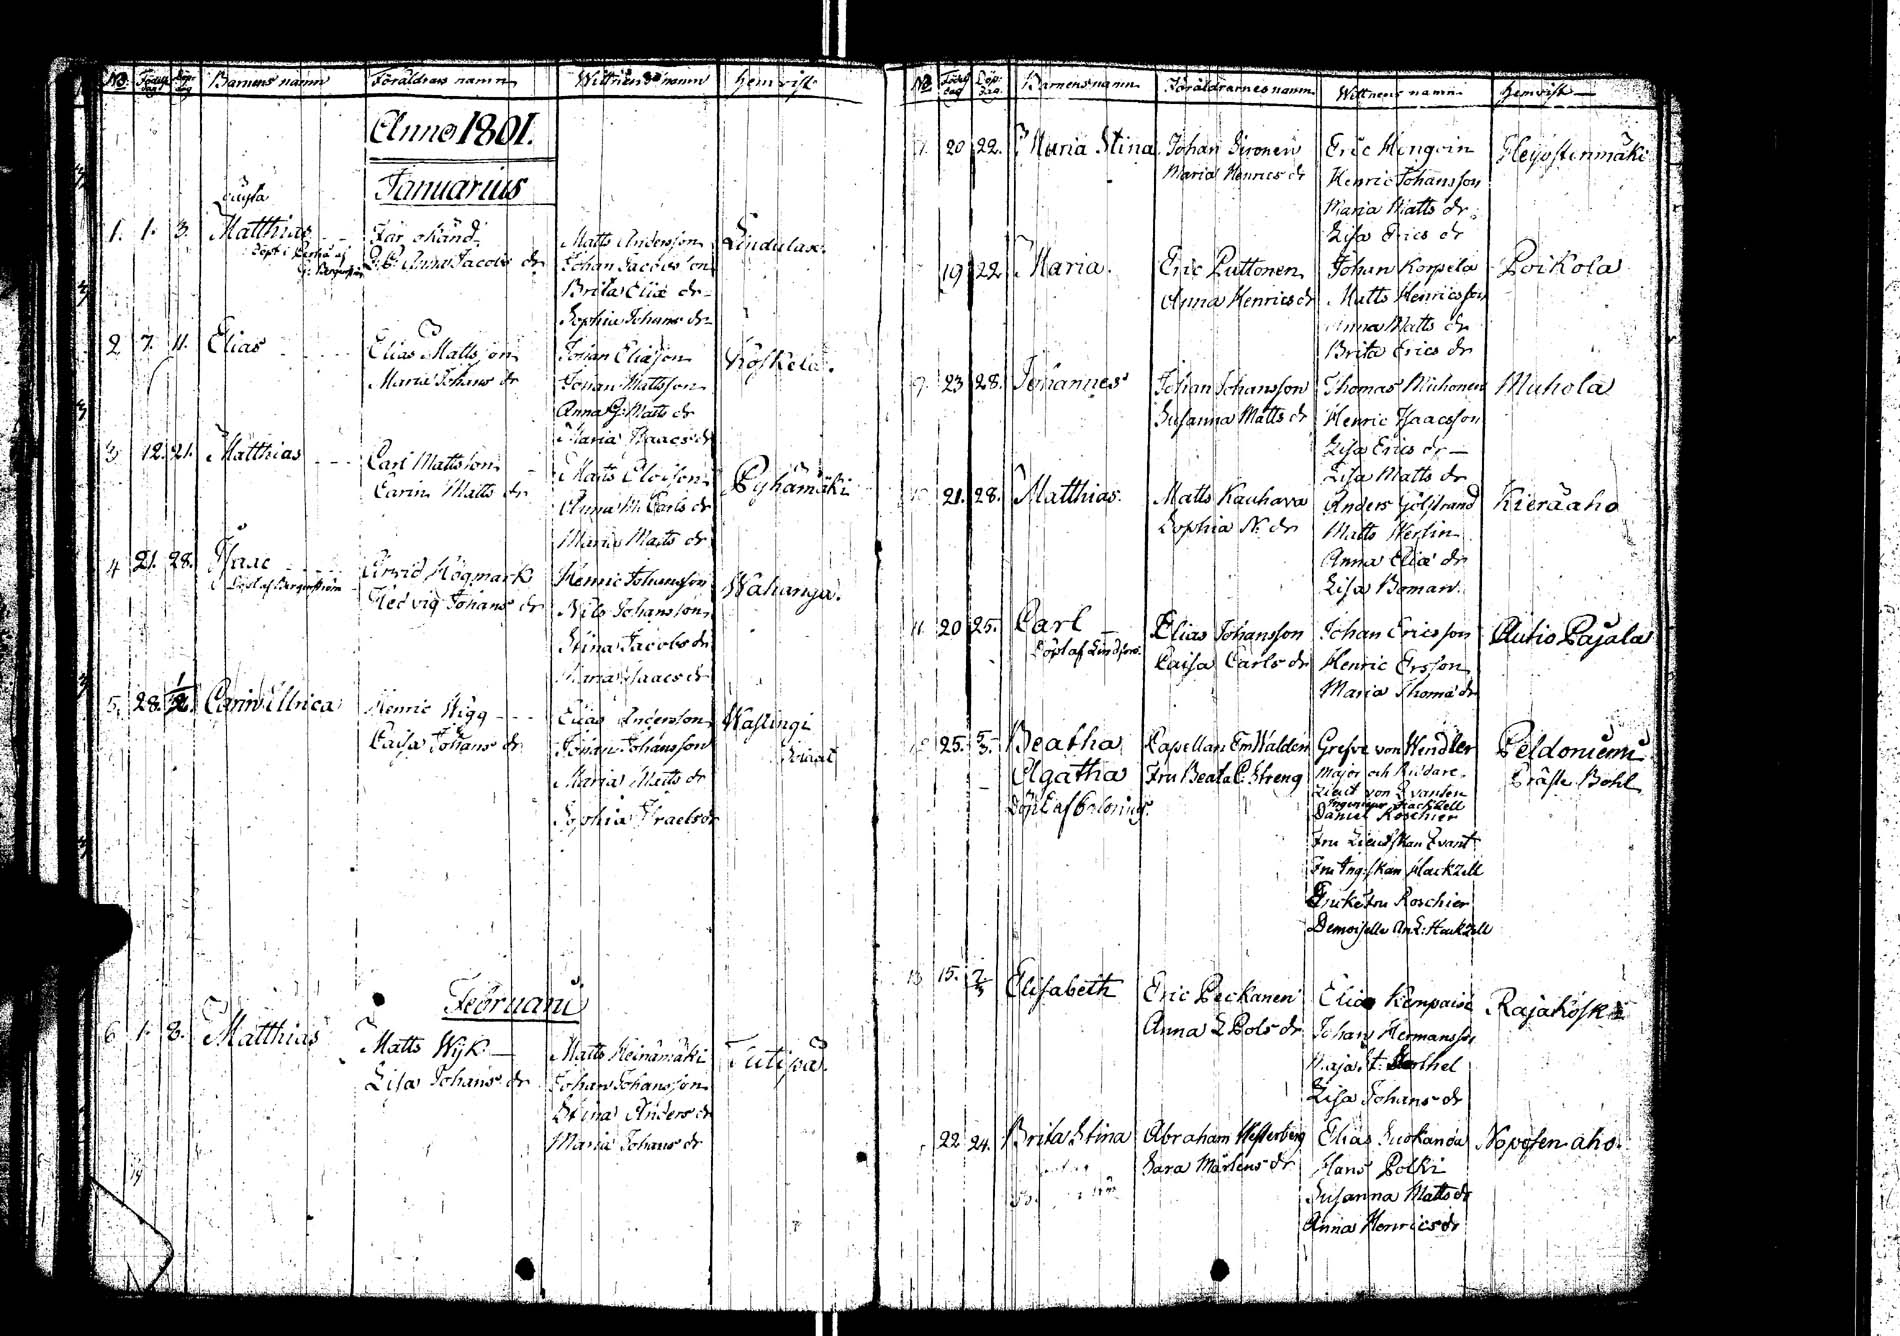 No. Födelsedag Döp: dag Barnens namn Föräldrars namn Wittnens namn Hemvist
Anno 1801.
Januarius
1. 1. 3. Matthias Far okänd Matts Andersson Lindulax.
Döpt i Perho af Anna Jacobs dr Johan Jacobsson
Brita Eliæ dr
Sophia Johans dr
2 7. 11. Elias Elias Mattsson Johan Eliæson Koskela.
Maria Johans dr Johan Mattsson
Anna G: Matts dr
Maria Isaacs dr
3 12. 21. Matthias Carl Mattsson Matts Pyhämäki
Carin Matts dr Anna M. Carls dr
Maria Matts dr
4 21. 28. Isaac Arvid Högmark Henric Johansson Wahanga.
Döpt af Bergenström Hedvig Johans dr Nils Johansson
Stina Jacobs dr
Maria Isaacs dr
5. 28. 1/2. Carin Ullrica Henric Wigg Elias Andersson Wastingi
Caisa Johans dr Johan Johansson Soldat
Maria Matts dr
Sophia Israels dr
Februarii
6 1. 8. Matthias Matts Wijk Matts Heinämäki Tutipä.
Lisa Johans dr Johan Johansson
Stina Anders dr
Maria Johans dr
No Födelse dag Döp: dag. Barnens namn Föräldrarnes namn Wittnens namn Hemvist
7. 20 22. Maria Stina Johan Eric Hengvin
Maria Henrics dr Henric Johansson
Maria Matts dr
Lisa Erics dr
19 22 Maria. Eric Puttonen Johan Korpela Poikola
Anna Henrics dr Matts Henricsson
Anna Matts dr
Brita Erics dr
9. 23 28. Johannes Johan Johansson Thomas Muhonen Muhola
Susanna Matts dr Henric Isaacsson
Lisa Erics dr
Lisa Matts dr
21. 28. Matthias. Matts Kauhava Anders Kieräaho
Sophia N. dr Matts Werlin
Anna Eliæ dr
Lisa Boman.
11 20 25. Carl Elias Johansson Johan Ericsson Autio Pajala
Döpt af Caisa Carls dr Henric Ersson
Maria Thomæ dr
25. 5/3. Beatha Capellan Em Walden Grefve von Wendler Peldoniemi
Agatha Fru Beata C. Streng Major och Riddare. Präste Bohl
Döpt af Lieut von Qvanten
Ingenieur Hackzell
Daniel Roschier
Fru Lieutskan Qvant
Fru Ing:skan Hackzell
Enkefru Roschier
Demoiselle An L: Hackzell
13 15. 2/3 Elisabeth Eric Peckanen Elias Kempaisi Rajakoski
Anna L Pols dr Johan Hermansson
Maja St.
Lisa Johans dr
22 24. Brita Stina Abraham Westerberg Elias Suokanda Noposen aho.
Sara Mårtens dr Hans Polki
Susanna Matts dr
Anna Henrics dr